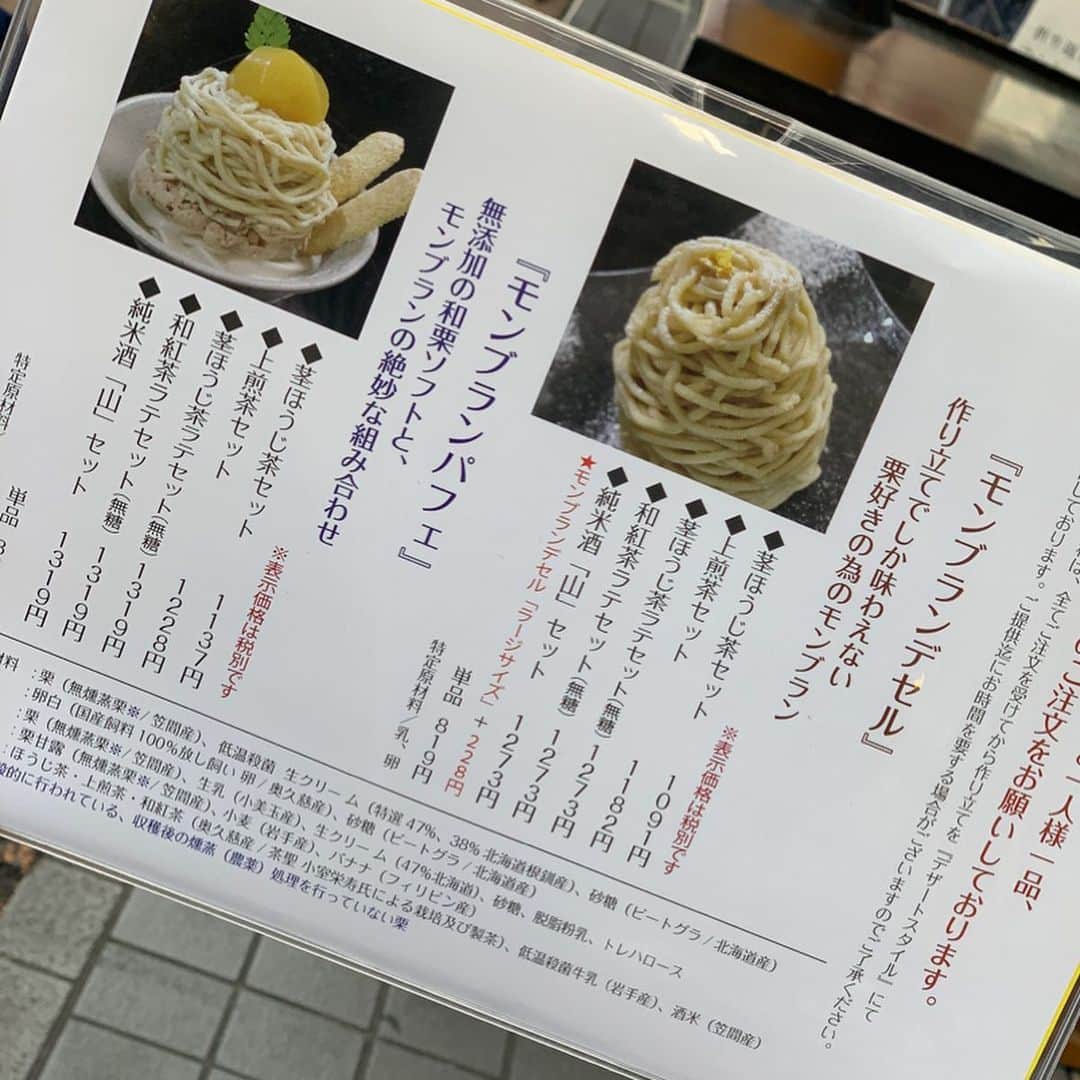 一人様一品、
のご注文をお願いしております。
は、全てご注文を受けてから作り立てを『デザートスタイル』にて
しております。ご提供迄にお時間を要する場合がございますのでご了承ください。
『モンブランデセル』
作り立てでしか味わえない
栗好きの為のモンブラン
※表示価格は税別です
◆茎ほうじ茶セット 1091円
◆上煎茶セット 1182円
◆茎ほうじ茶ラテセット(無糖) 1273円
◆和紅茶ラテセット(無糖) 1273円
◆純米酒「山」セット 1273円
★モンブランデセル「ラージサイズ」+228円
単品 819円
特定原材料/乳、卵
『モンブランパフェ』
無添加の和栗ソフトと、
モンブランの絶妙な組み合わせ
※表示価格は税別です
◆茎ほうじ茶セット 1137円
◆上煎茶セット 1228円
◆茎ほうじ茶ラテセット(無糖) 1319円
◆和紅茶ラテセット(無糖) 1319円
◆純米酒「山」セット 1319円
単品
特定原材料/
材料 :栗(無燻蒸栗※/笠間産)、低温殺菌 生クリーム(特選47%、38%北海道根釧産)、砂糖(ビートグラ/北海道産)
:卵白(国産飼料100%放し飼い卵/奥久慈産)、砂糖(ビートグラ/北海道産)
:栗(無燻蒸栗※/笠間産)、生乳(小美玉産)、生クリーム(47%北海道)、砂糖、脱脂粉乳、トレハロース
:栗甘露(無燻蒸栗※/笠間産)、小麦(岩手産)、バナナ(フィリピン産)
:ほうじ茶・上煎茶・和紅茶(奥久慈産/茶聖 小室栄寿氏による栽培及び製茶)、低温殺菌牛乳(岩手産)、酒米(笠間産)
的に行われている、収穫後の燻蒸(農薬)処理を行っていない栗